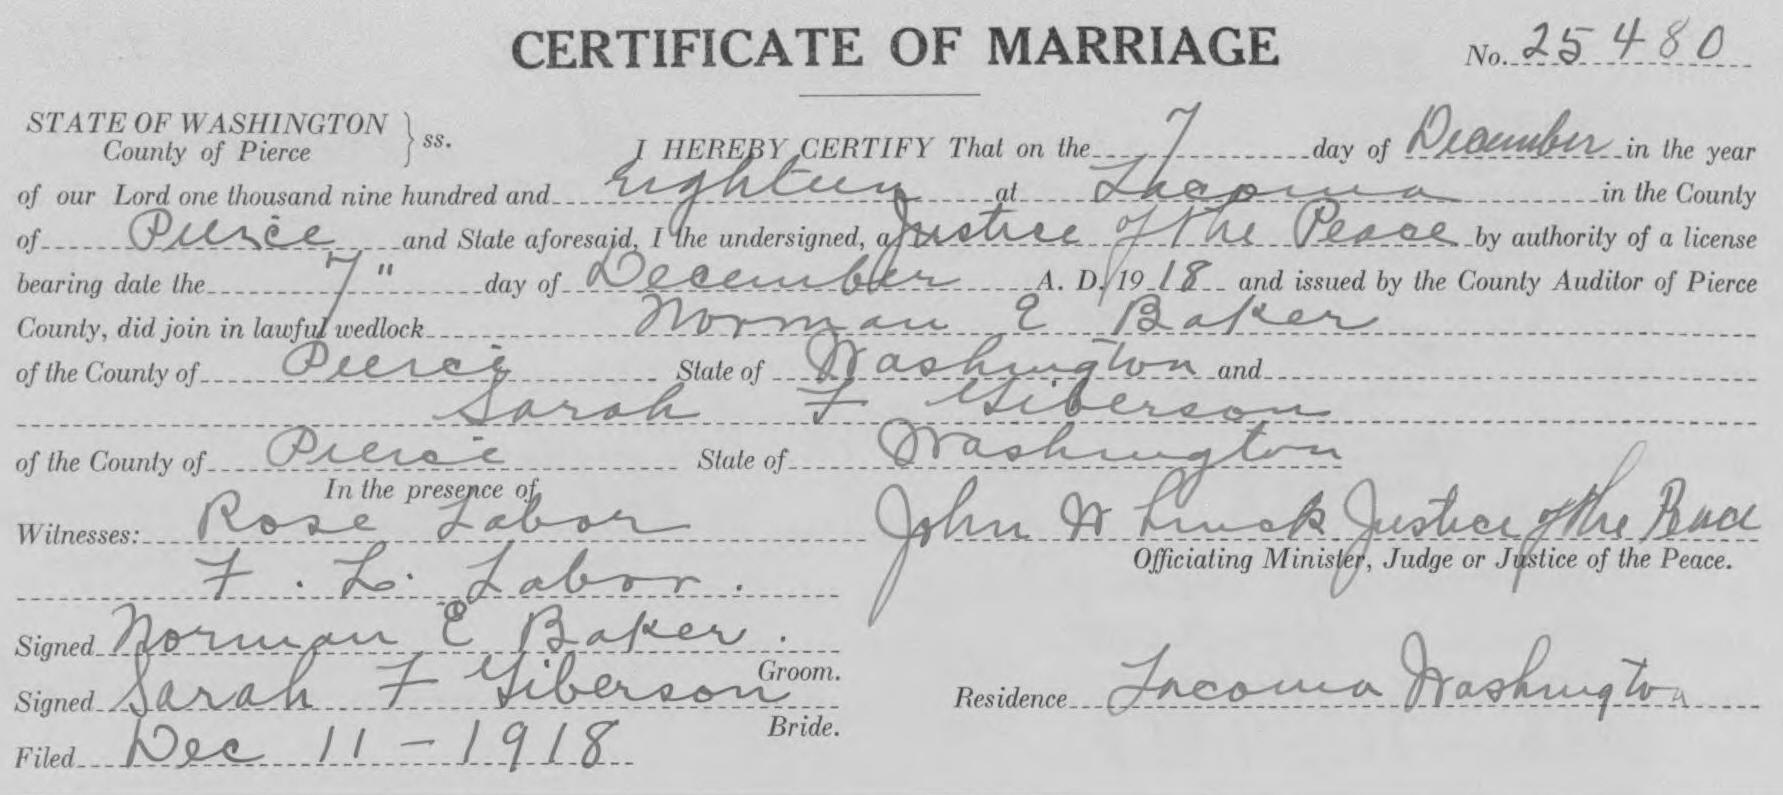 CERTIFICATE OF MARRIAGE No. 25480
STATE OF WASHINGTON } ss.
County of Pierce
I HEREBY CERTIFY That on the 7 day of December in the year
of our Lord one thousand nine hundred and Eighteen at Tacoma in the County
of Pierce and State aforesaid, I the undersigned, a Justice of the Peace by authority of a license
bearing date the 7" day of December A. D. 1918 and issued by the County Auditor of Pierce
County, did join in lawful wedlock Norman E Baker
of the County of Pierce State of Washington and
Sarah F Giberson
of the County of Pierce State of Washington
In the presence of
Witnesses: Rose Labor John W Justice of the Peace
Officiating Minister, Judge or Justice of the Peace.
F. L. Labor.
Signed Norman E Baker.
Groom.
Signed Sarah F Giberson Residence Tacoma Washington
Bride.
Filed Dec 11 - 1918